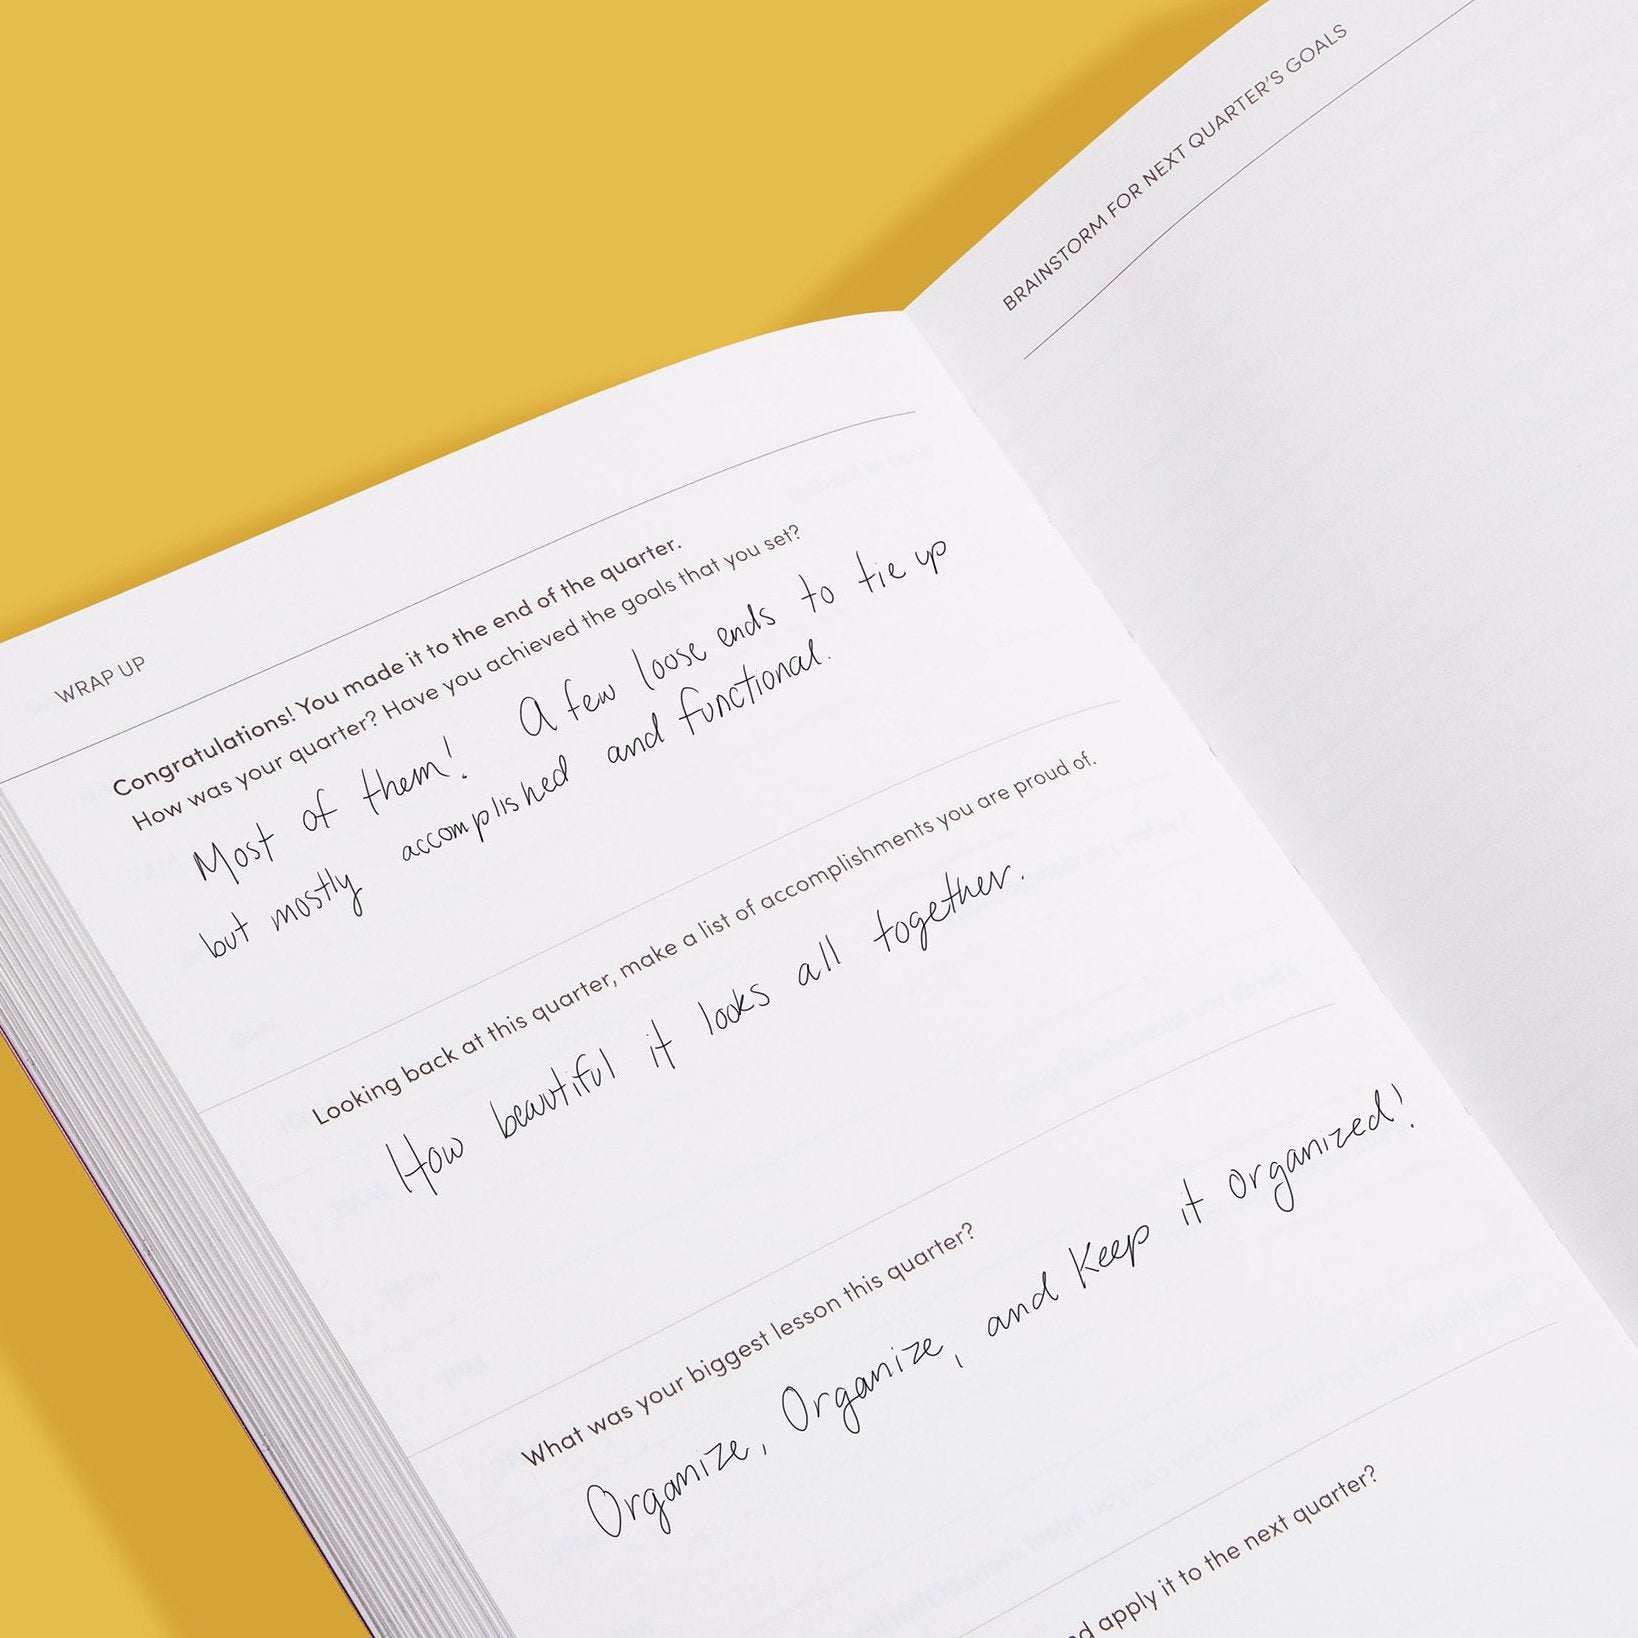 WRAP UP
Congratulations! You made it to the end of the quarter.
How was your quarter? Have you achieved the goals that you set?
Most of them! A few loose ends to tie up
but mostly accomplished and functional.
Looking back at this quarter, make a list of accomplishments you are proud of.
How beautiful it looks all together.
What was your biggest lesson this quarter?
Organize, Organize, and Keep it organized!
apply it to the next quarter?
BRAINSTORM FOR NEXT QUARTER'S GOALS